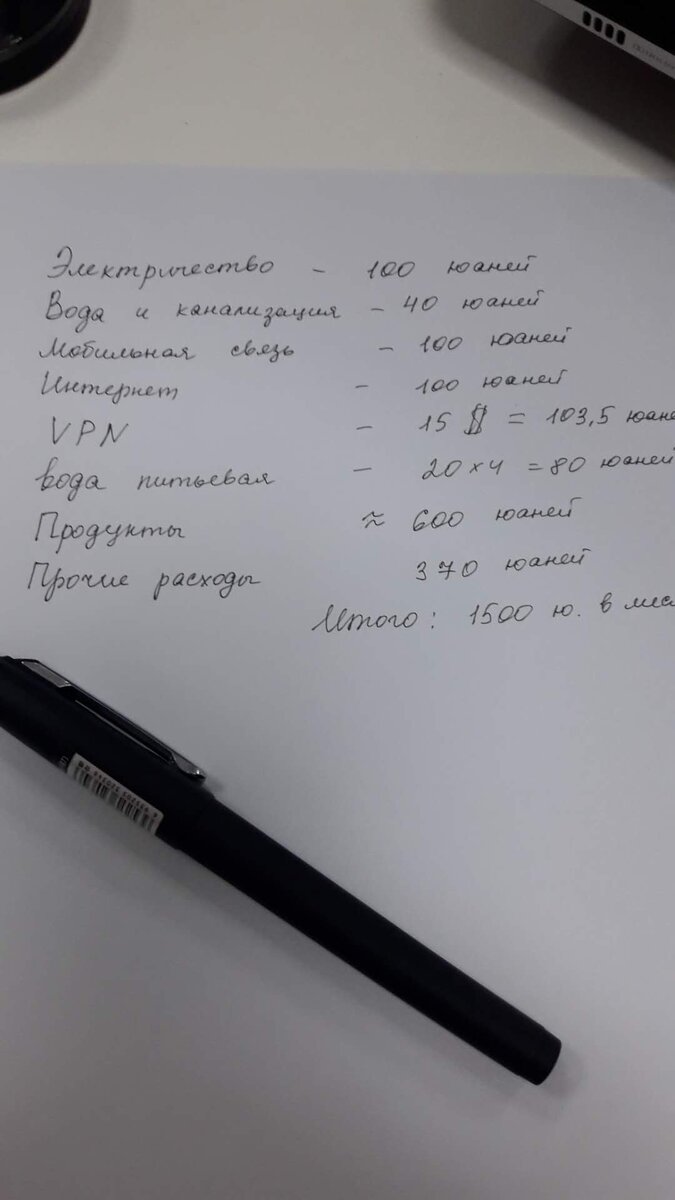 Электричество - 100 юаней
Вода и канализация - 40 юаней
Мобильная связь - 100 юаней
Интернет - 100 юаней
VPN - 15 $ = 103,5 юане
вода питьевая - 20 × 4 = 80 юаней
Продукты ≈ 600 юаней
Прочие расходы 370 юаней
Итого: 1500 ю. в мес